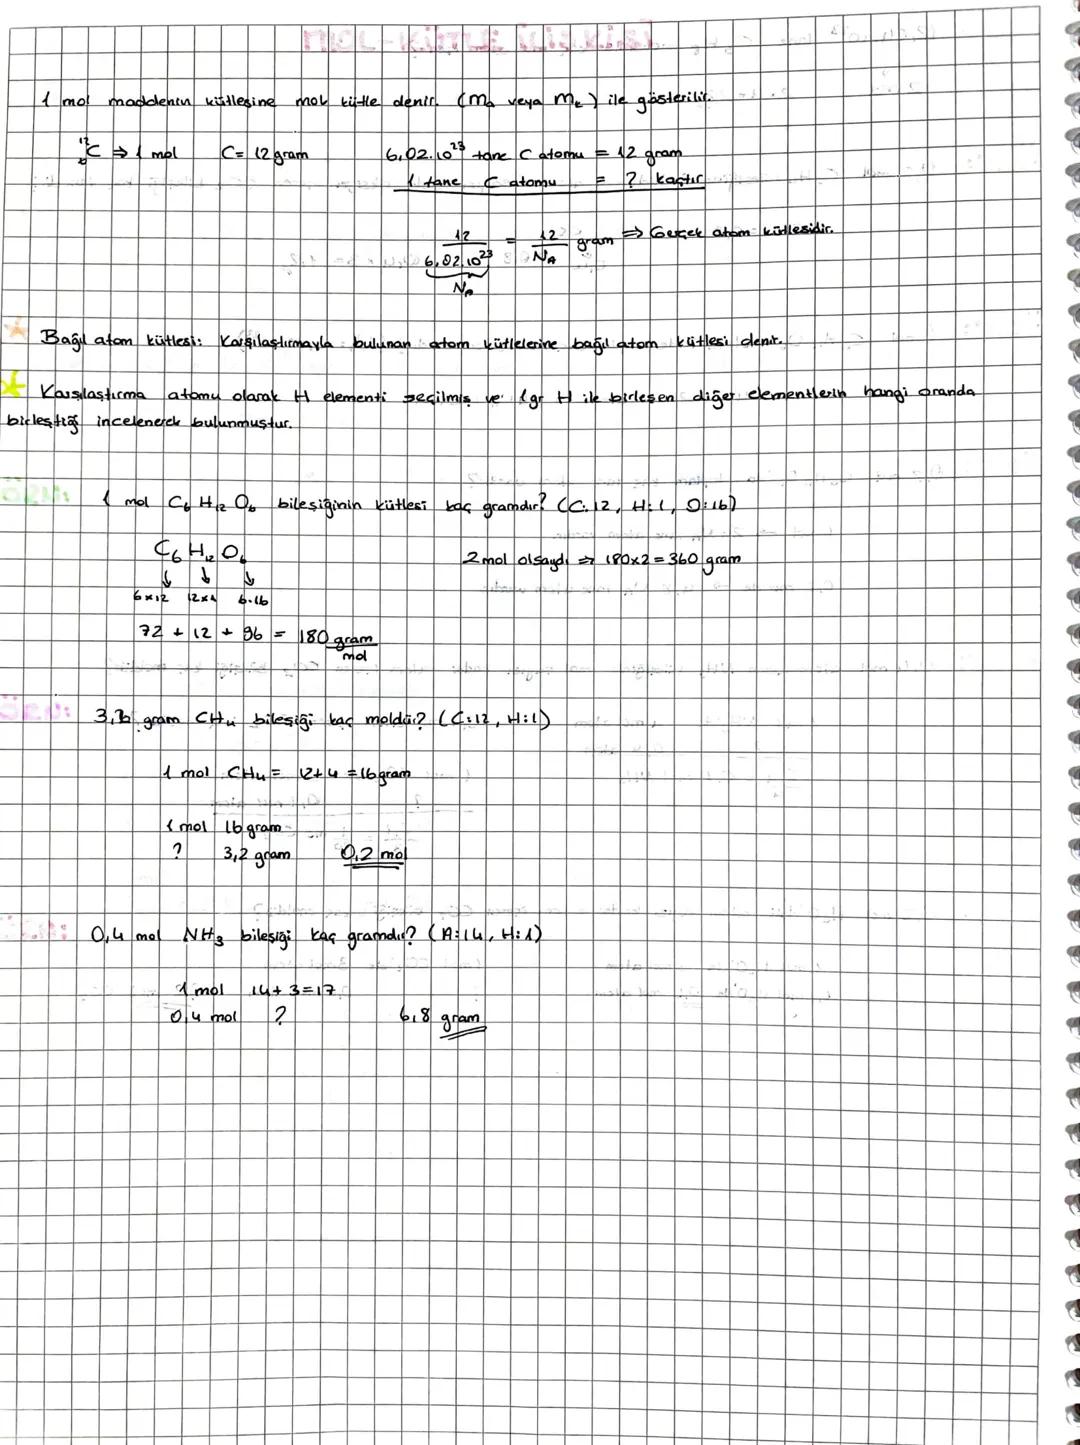 MOL-KÜTLE İLİŞKİSİ
1 mol maddenin kütlesine mol kütle denir. (ma veya mk) ile gösterilir.
¹²₆C ⇒ 1 mol C = 12 gram 6,02.10²³ tane C atomu = 12 gram
1 tane C atomu = ? kaçtır
12 / 6,02.10²³ = 12 / NA gram ⇒ Gerçek atom kütlesidir.
NA
Bağıl atom kütlesi: Karşılaştırmayla bulunan atom kütlelerine bağıl atom kütlesi denir.
Karşılaştırma atomu olarak H elementi seçilmiş ve 1gr H ile birleşen diğer elementlerin hangi oranda
birleştiği incelenerek bulunmuştur.
ÖRN: 1 mol C₆H₁₂O₆ bileşiğinin kütlesi kaç gramdır? (C:12, H:1, O:16)
C₆H₁₂O₆ 2 mol olsaydı ⇒ 180x2=360 gram
↓ ↓ ↓
6x12 12x1 6.16
72 + 12 + 96 = 180 gram/mol
3,2 gram CH₄ bileşiği kaç moldür? (C:12, H:1)
1 mol CH₄ = 12+4 = 16 gram
1 mol 16 gram
? 3,2 gram 0,2 mol
0,4 mol NH₃ bileşiği kaç gramdır? (A:14, H:1)
1 mol 14+3=17
0,4 mol ? 6,8 gram